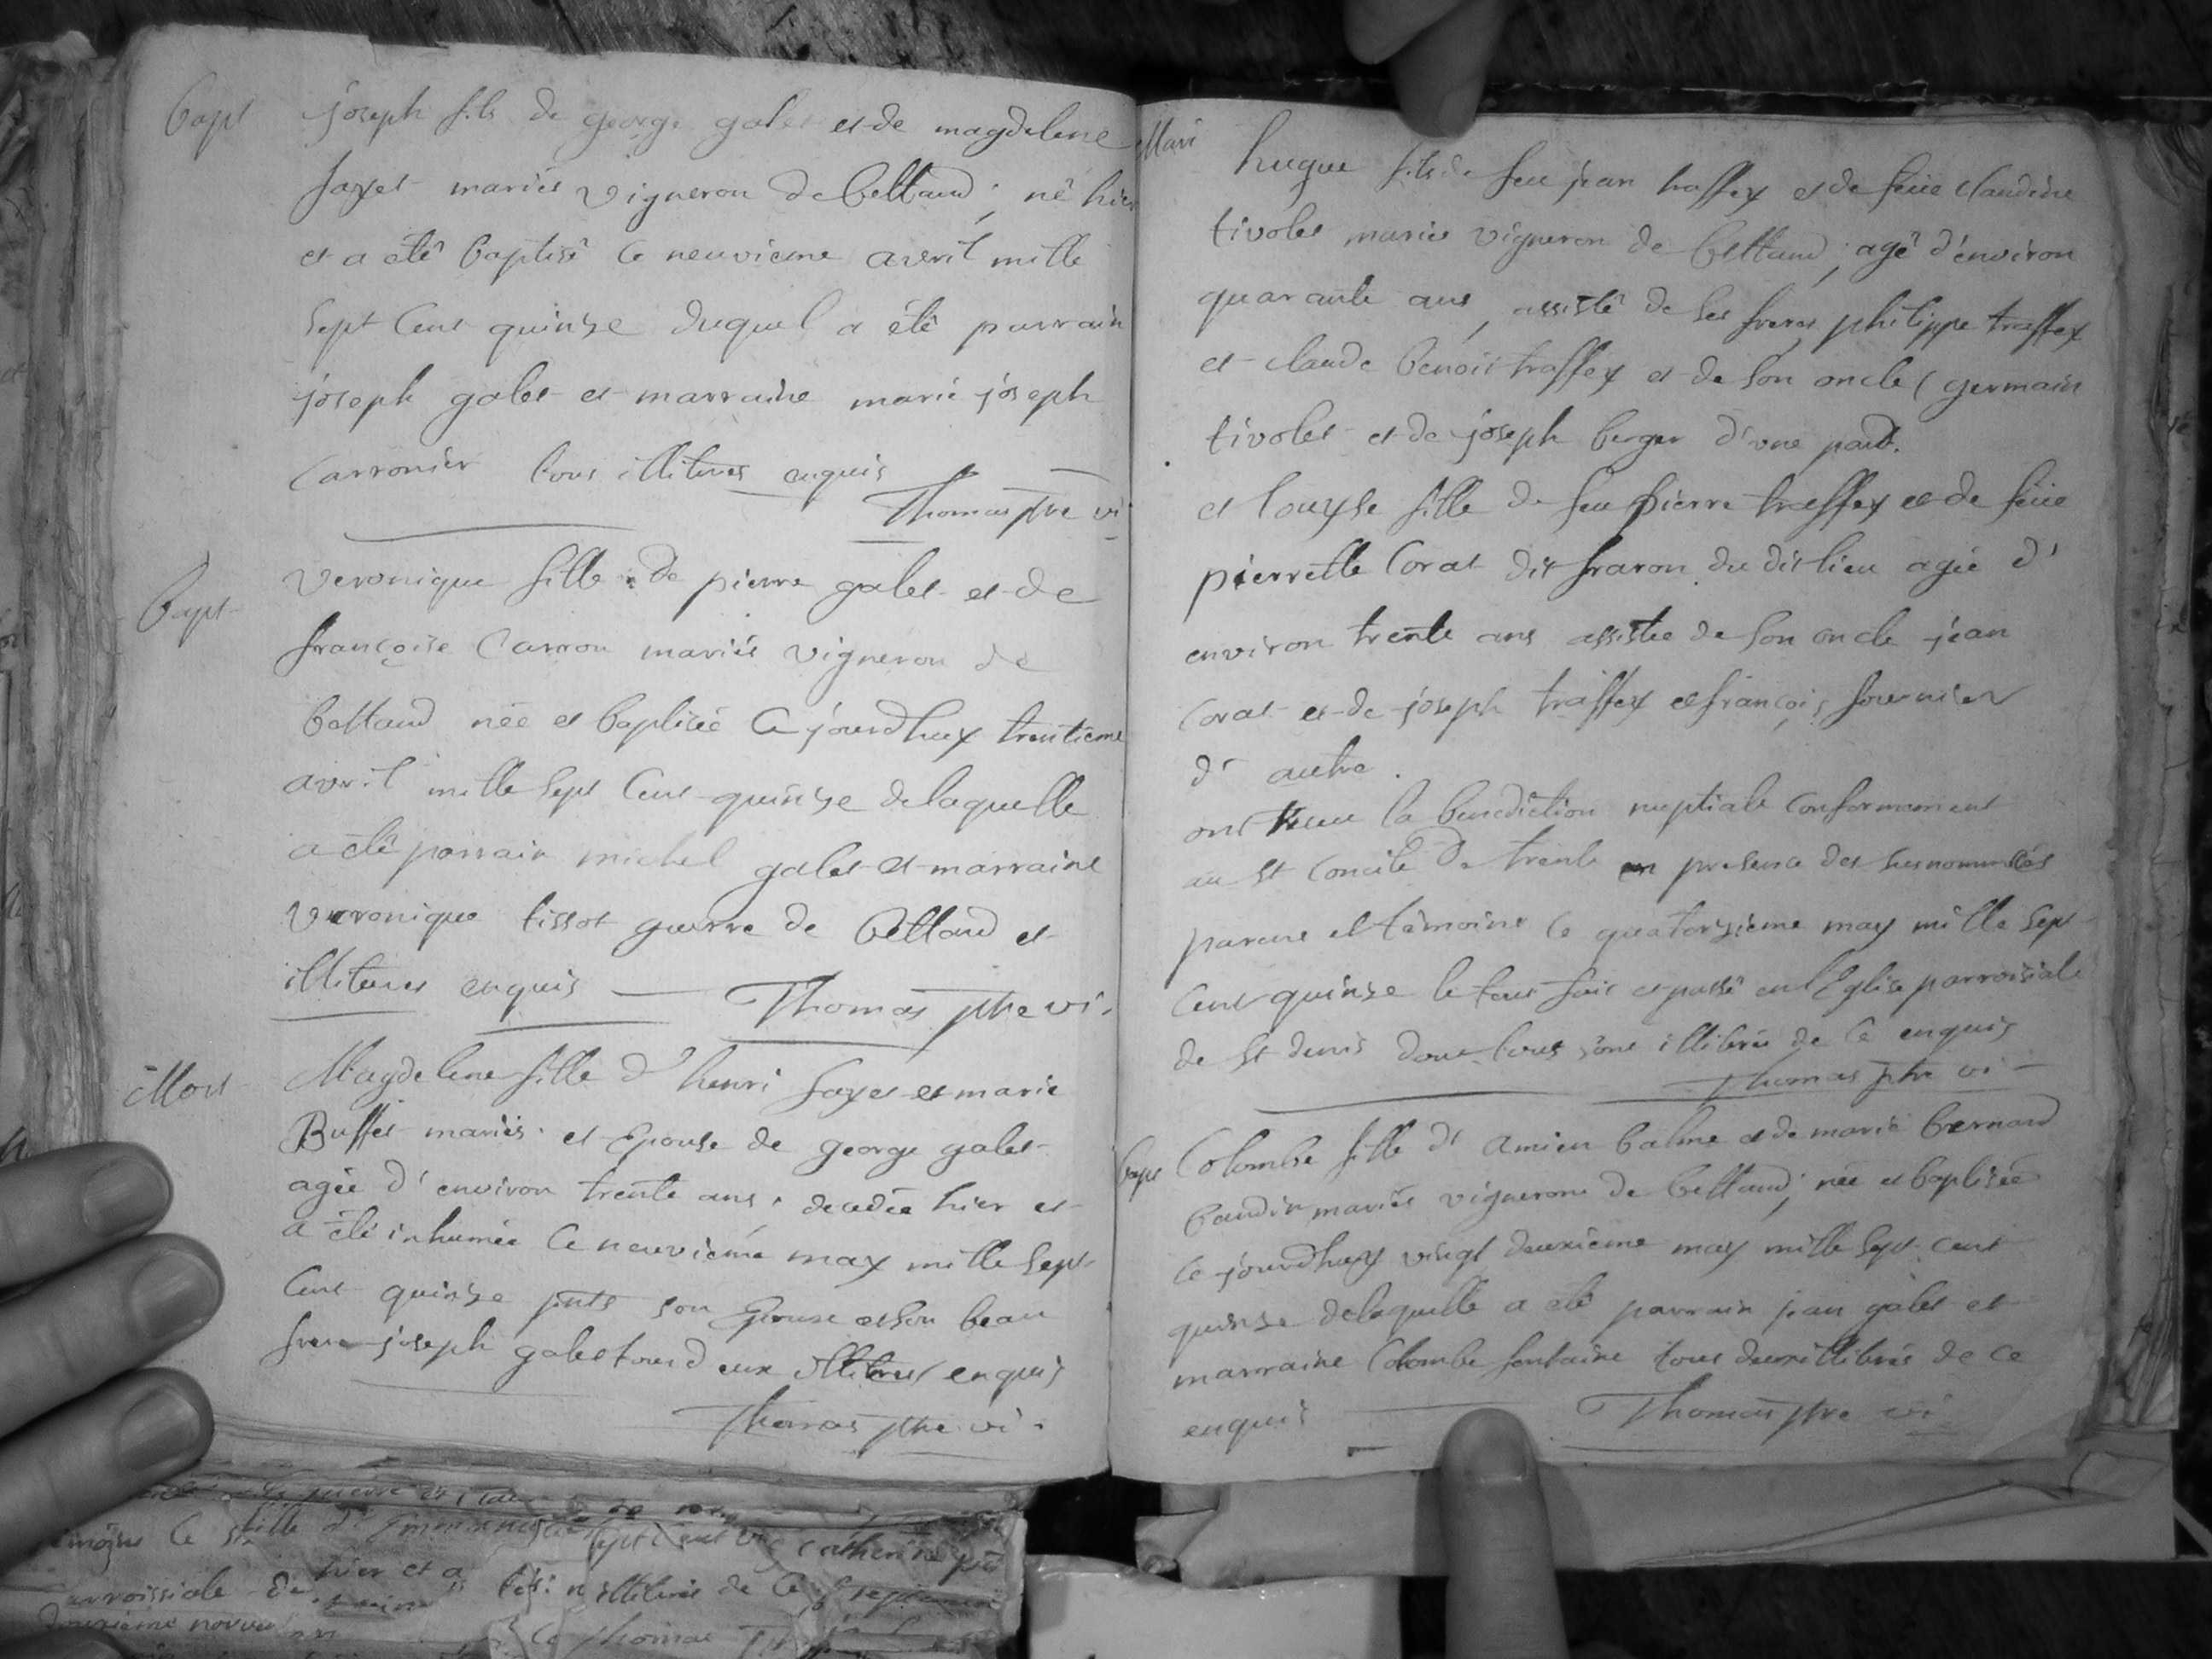 Bapt
joseph fils de george galet et de magdelene
fayet mariés vigneron de bettand; né hier
et a été baptisé ce neuvieme avril mille
sept cent quinse duquel a été parrain
joseph galet et marraine marie joseph
carronier tous illiteres enquis
Thomas ptre vi
Bapt
veronique fille de pierre galet et de
françoise Carron mariés vigneron de
bettand née et baptisée ce jourdhuy trentieme
avril mille sept cent quinse de laquelle
a été parrain michel galet et marraine
veronique tissot guerre de bettand et
illiteres enquis Thomas ptre vi.
Mort
Magdelene fille d'henri fayet et marie
Buffet mariés et Epouse de george galet
agée d'environ trente ans decedée hier et
a été inhumée ce neuvieme may mille sept
cent quinse pnts son Epoux et son beau
frere joseph galet tous deux illiteres enquis
Thomas ptre vi.
Mari
hugue fils de feu jean traffey et de feüe claudine
tivolet mariés vigneron de bettand; agé d'environ
quarante ans, assisté de ses freres philippe traffey
et claude benoit traffey et de son oncle germain
tivolet et de joseph berger d'une part.
et louyse fille de feu pierre traffey et de feüe
pierrette Corat dit fraron du dit lieu agée d'
environ trente ans assistée de son oncle jean
corat et de joseph traffey et françois fournier
d'autre.
ont receu la benediction nuptiale conformement
au st concile de trente en presence des susnommés
parens et témoins ce quatorsieme may mille sept
cent quinse le tout fait et passé en l'Eglise parroisiale
de st denis dont tous sont illiterés de ce enquis
Thomas ptre vi
Bapt
Colombe fille d'amieu balme et de marie bernard
baudin mariés vignerons de bettand; née et baptisée
ce jourdhuy vingt deuxieme may mille sept cent
quinse de laquelle a été parrain jean galet et
marraine Colombe fontaine tous deux illiterés de ce
enquis Thomas ptre vi
hier et a
illiterés de ce
Thomas